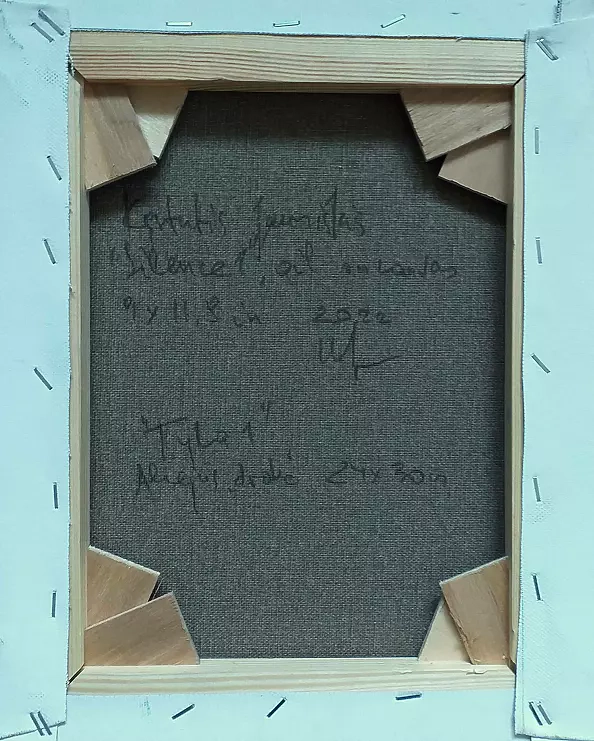 Kęstutis Jauniškis
"Silence 1", oil on canvas
9 x 11.8 in 2022
"Tyla 1"
Aliejus, drobė 24x30